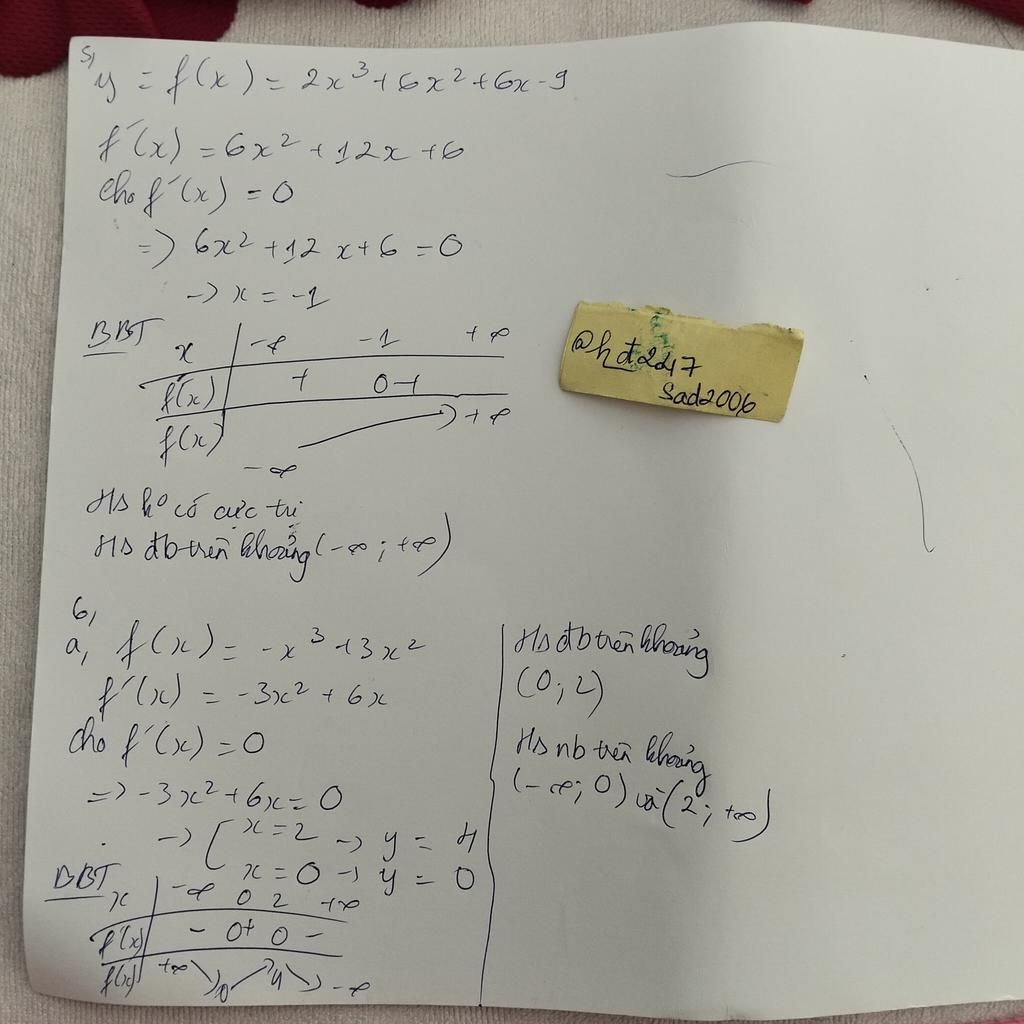 5,
y = f(x) = 2x³ + 6x² + 6x - 9
f'(x) = 6x² + 12x + 6
cho f'(x) = 0
=> 6x² + 12x + 6 = 0
-> x = -1
BBT
x | -∞ -1 +∞
f'(x) | + 0 +
f(x) | -∞ +∞
Hs ko có cực trị
Hs đb trên khoảng (-∞; +∞)
@hđ2247
Sad2006
6,
a, f(x) = -x³ + 3x²
f'(x) = -3x² + 6x
cho f'(x) = 0
=> -3x² + 6x = 0
-> [ x = 2 -> y = 4
x = 0 -> y = 0
BBT
x | -∞ 0 2 +∞
f'(x) | - 0 + 0 -
f(x) | +∞ 0 4 -∞
Hs đb trên khoảng
(0; 2)
Hs nb trên khoảng
(-∞; 0) và (2; +∞)